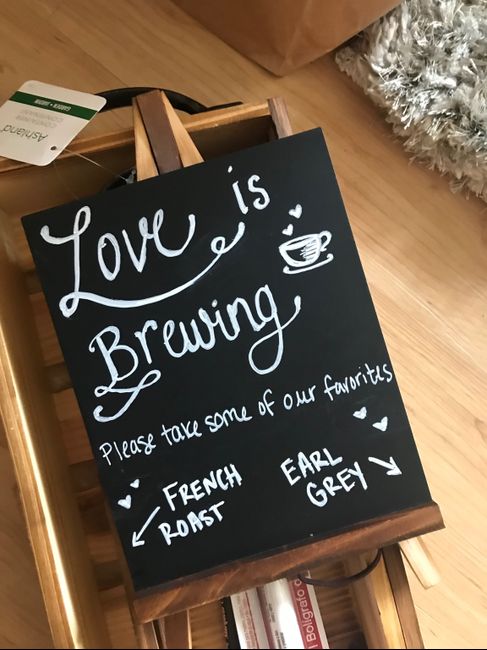 Love is
Brewing
Please take some of our favorites
FRENCH
ROAST
EARL
GREY
Ashland
CONTAINER
GARDEN
Boligrafo